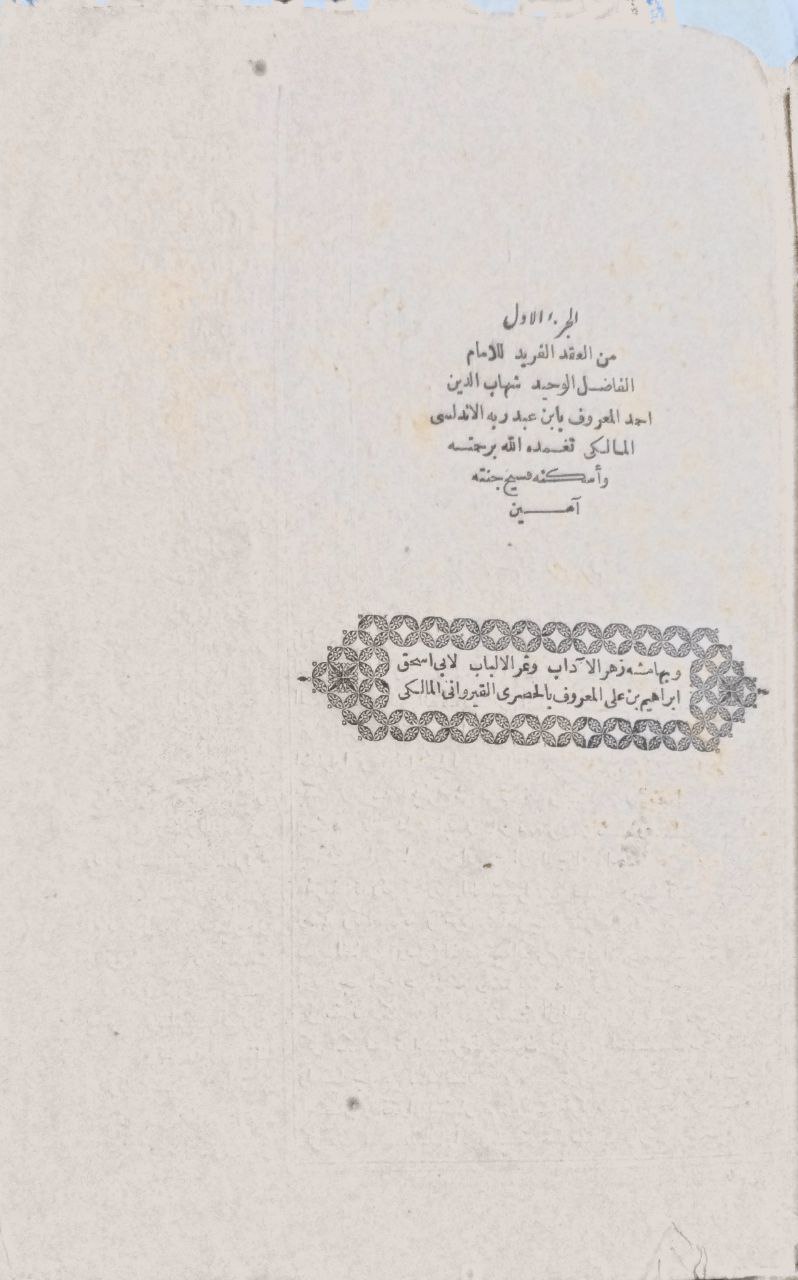 الجزء الاول
من العقد الفريد للامام
الفاضل الوحيد شهاب الدين
احمد المعروف بابن عبد ربه الاندلسى
المالكى تغمده الله برحمته
وأسكنه فسيح جنته
آمين
وبهامشه زهر الآداب وثمر الالباب لابى اسحق
ابراهيم بن على المعروف بالحصرى القيروانى المالكى